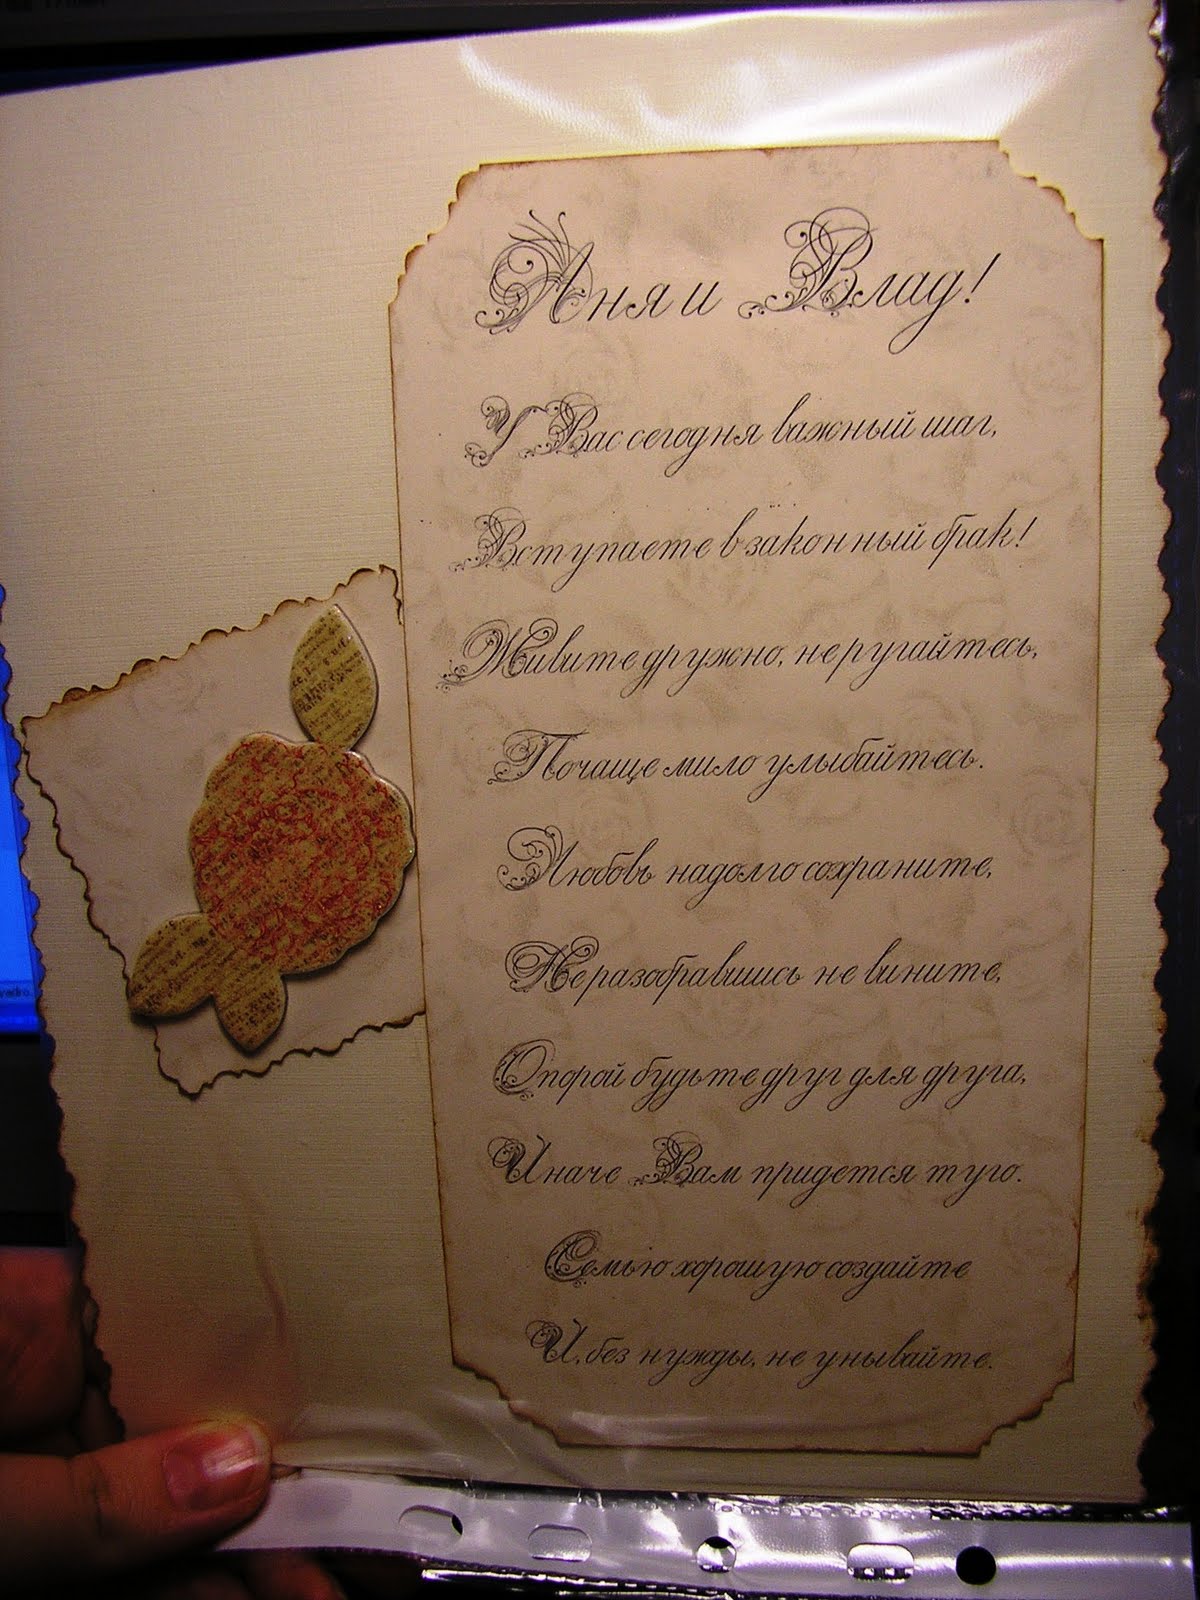 Аня и Влад!
У Вас сегодня важный шаг,
Вступаете в законный брак!
Живите дружно, не ругайтесь,
Почаще мило улыбайтесь.
Любовь надолго сохраните,
Не разобравшись не вините,
Опорой будьте друг для друга,
Иначе Вам придется туго.
Семью хорошую создайте
И, без нужды, не унывайте.